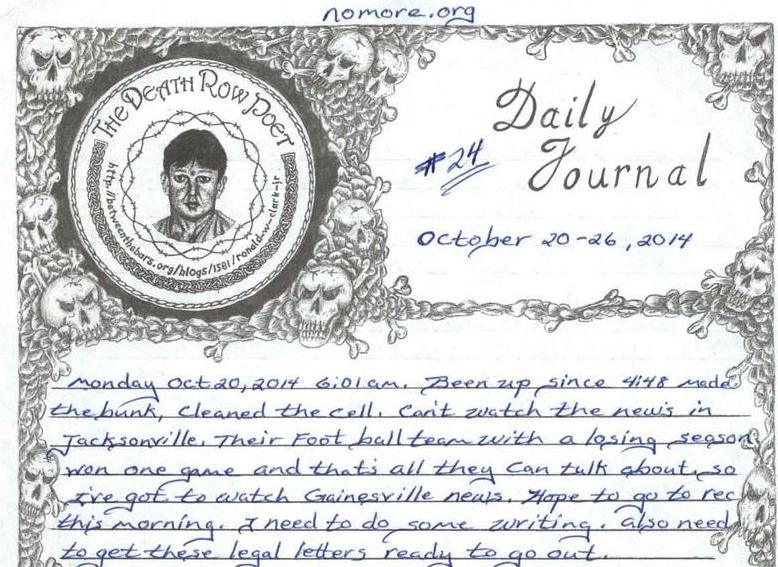 nomore.org
THE DEATH ROW POET
http://betweenthebars.org/blogs/1581/ronald-w-clark-jr
Daily
Journal
#24
October 20-26, 2014
Monday Oct 20, 2014 6:01 am. Been up since 4:48 made
the bunk, Cleaned the cell. Can't watch the news in
Jacksonville. Their Foot ball team with a losing season
won one game and thats all they Can talk about, so
I've got to watch Gainesville news. Hope to go to rec
this morning. I need to do some writing. also need
to get these legal letters ready to go out.